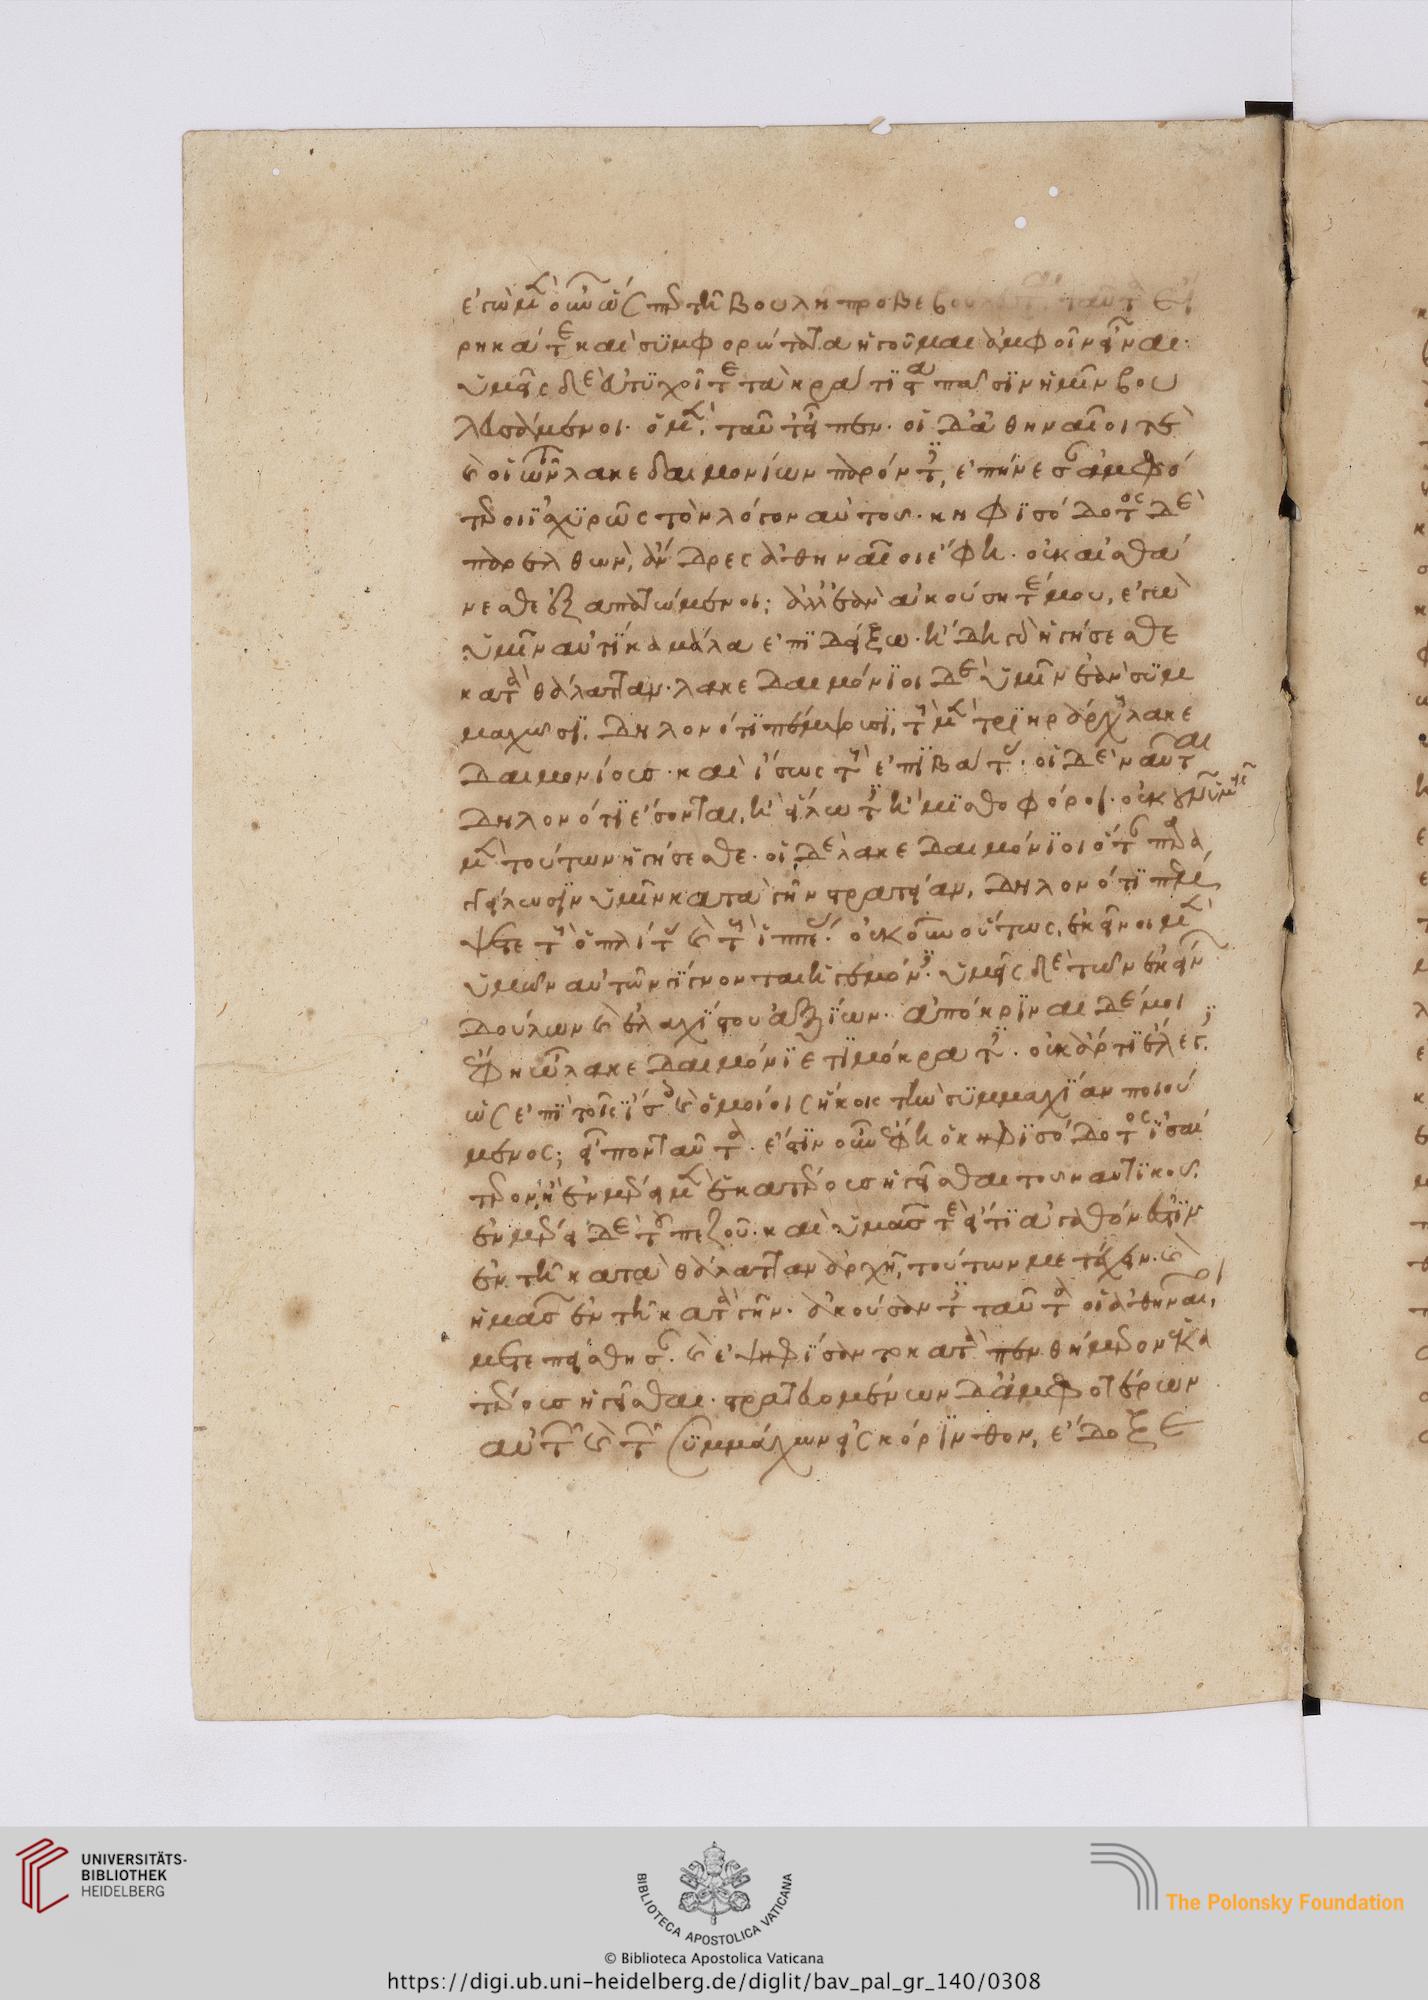 ἐγὼ μὲν οὖν ὥσπερ τῇ βουλῇ προβεβούλευται ταῦτα εὑ
ρηκά τε καὶ συμφορώτατα ἡγοῦμαι ἀμφοῖν εἶναι·
ὑμεῖς δὲ εὐτυχοῖτε τὰ κράτιστα πᾶσιν ἡμῖν βου
λευσάμενοι. ὁ μὲν ταῦτ' εἶπεν. οἱ δ' ἀθηναῖοι τὲ
καὶ οἱ τῶν λακεδαιμονίων παρόντες, ἐπήνεσαν ἀμφό
τεροι ἰσχυρῶς τὸν λόγον αὐτοῦ. κηφισόδοτος δὲ
παρελθὼν, ἄνδρες ἀθηναῖοι ἔφη. οὐκ αἰσθά
νεσθε ἐξαπατώμενοι; ἀλλ' ἐὰν ἀκούσητέ μου, ἐγὼ
ὑμῖν αὐτίκα μάλα ἐπιδείξω. ἤδη γὰρ ἡγήσεσθε
κατὰ θάλατταν. λακεδαιμόνιοι δὲ ὑμῖν ἐὰν συμ
μαχῶσι, δῆλον ὅτι πέμψουσι, τοὺς μὲν τριηράρχους λακε
δαιμονίους. καὶ ἴσως τοὺς ἐπιβάτας. οἱ δὲ ναῦται
δῆλον ὅτι ἔσονται, ἢ εἵλωτες ἢ μισθοφόροι. οὐκοῦν ὑμεῖς
μὲν τούτων ἡγήσεσθε. οἱ δὲ λακεδαιμόνιοι ὅταν παρα
γγείλωσιν ὑμῖν κατὰ γῆν στρατείαν, δῆλον ὅτι πέμ
ψετε τοὺς ὁπλίτας καὶ τοὺς ἱππέας. οὐκοῦν οὕτως, ἐκεῖνοι μὲν
ὑμῶν αὐτῶν γίγνονται ἡγεμόνες. ὑμεῖς δὲ τῶν ἐκείνων
δούλων καὶ ἐλαχίστου ἀξίων. ἀπόκριναι δέ μοι
ἔφη ὦ λακεδαιμόνιε τιμόκρατες. οὐκ ἄρτι ἔλεγες,
ὡς ἐπὶ τοῖς ἴσοις καὶ ὁμοίοις ἥκοις τὴν συμμαχίαν ποιού
μενος; εἶπον ταῦτα. ἔστιν οὖν ἔφη ὁ κηφισόδοτος ἰσαί
τερον, ἢ ἐν μέρει μὲν ἑκατέρους ἡγεῖσθαι τοῦ ναυτικοῦ.
ἐν μέρει δὲ τοῦ πεζοῦ. καὶ ὑμᾶς τὲ εἴ τι ἀγαθόν ἐστιν
ἐν τῇ κατὰ θάλατταν ἀρχῇ, τούτων μετέχειν. καὶ
ἡμᾶς ἐν τῇ κατὰ γῆν. ἀκούσαντες ταῦτα οἱ ἀθηναῖοι,
μετεπείσθησαν. καὶ ἐψηφίσαντο κατὰ πενθήμερον ἑκα
τέρους ἡγεῖσθαι. στρατευομένων δ' ἀμφοτέρων
αὐτῶν καὶ τῶν συμμάχων εἰς κόρινθον, ἔδοξε
UNIVERSITÄTS-
BIBLIOTHEK
HEIDELBERG
BIBLIOTECA APOSTOLICA VATICANA
The Polonsky Foundation
© Biblioteca Apostolica Vaticana
https://digi.ub.uni-heidelberg.de/diglit/bav_pal_gr_140/0308